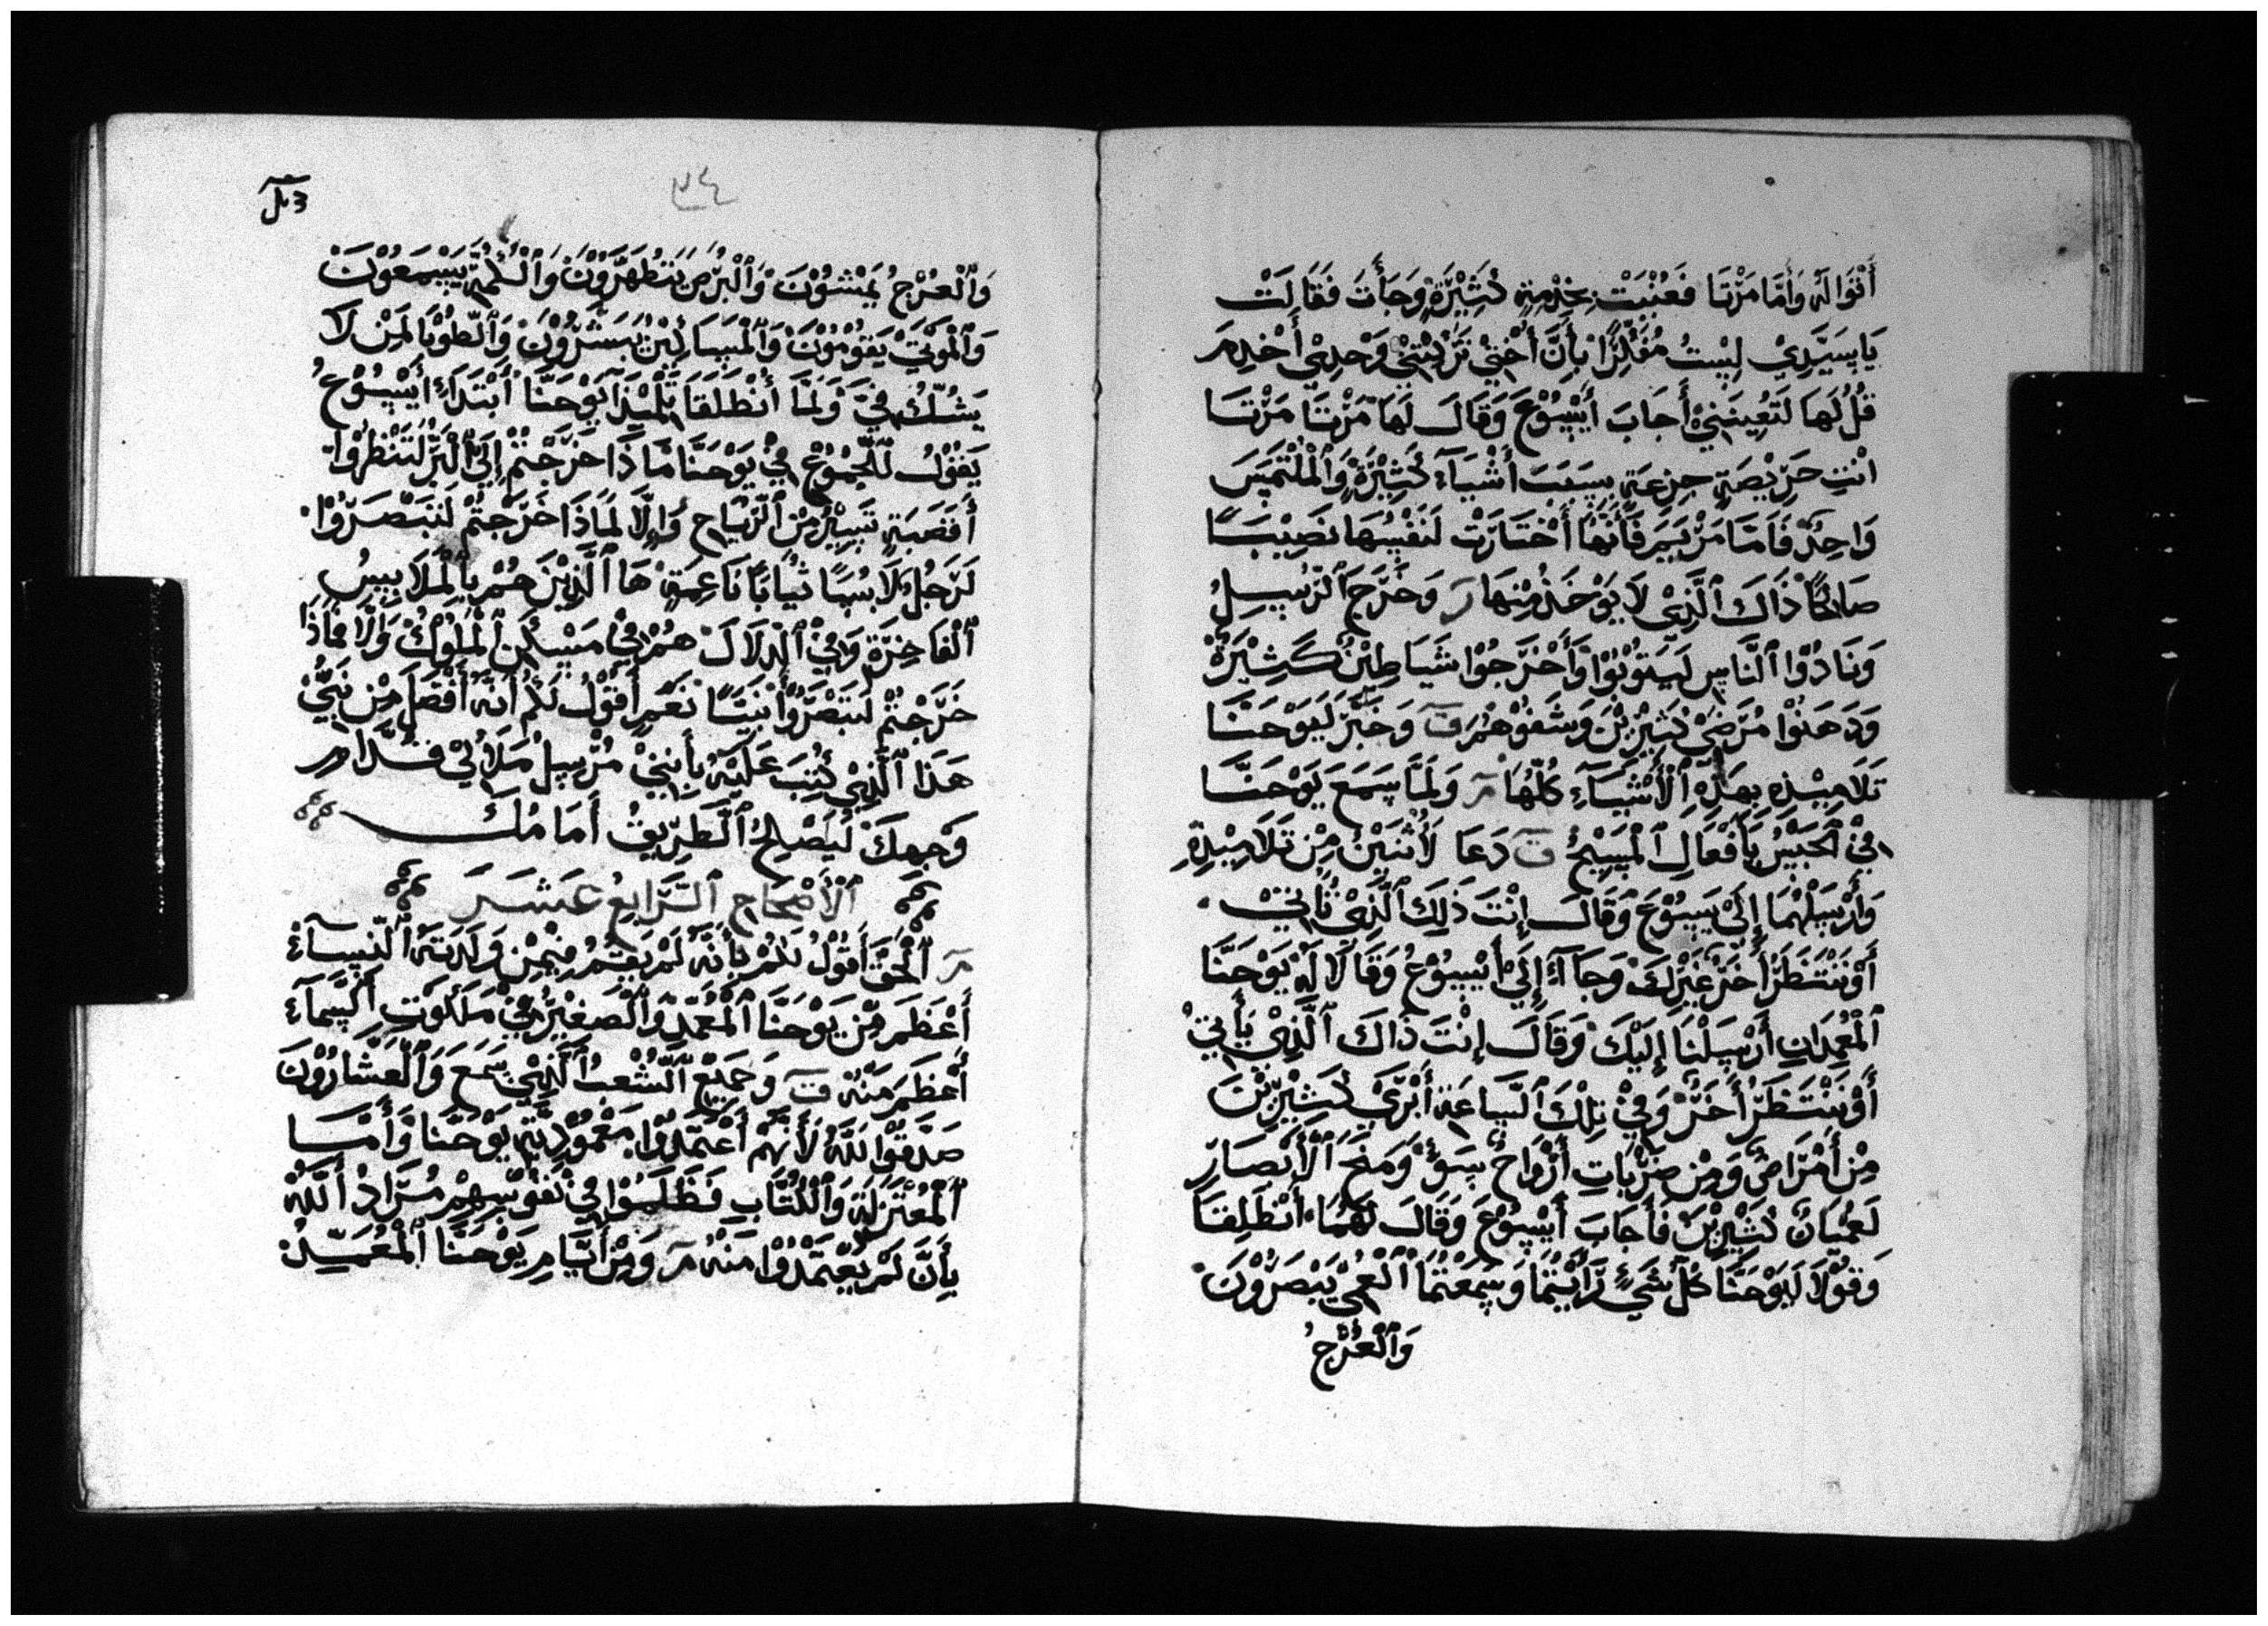 أَقْوَالَهُ وَأَمَّا مَرْتَا فَعُنْيَتْ بِخِدْمِةٍ كَثِيْرَةٍ وَجَأَتْ فَقَالَتْ
يَا سَيِّدِيْ لِيْسْتُ مُفَكِّرًا بِأَنَّ أُخْتِيْ تَرَكِتْنِيْ وَحْدِيْ أَخْدِمَ
قُلْ لَهَا لَتُعِينَنِيْ أَجَابَ أَيْسُوْعَ وَقَالَ لَهَا مَرْتَا مَرْتَا
انْتِ حَرِيْصَةٍ جِزِعَةٍ بِسَبَبَ أَشْيَآءَ كَثِيْرَةٍ وَالْمُلْتَمَسَ
وَاحِدٌ فَامَّا مَرْيَمَ فَأَنَّهَا أَخْتَارَتْ لَنَفْسِهَا نَصِيْبًا
صَالِحًا ذَاكَ الَّذِيْ لَا يَوْخَذُ مِنْهَا رَ وَخَرَجَ الرُّسِلُ
وَنَادُوْا النَّاسِ لَيَتُوْبُوْا وَأَخْرَجُوْا شَيَاطِيْنٌ كَثِيْرَةٌ
وَدَهَنُوْا مُرْضَيْ كَثِيْرِيْنَ وَشَفُوْهُمْ قَ وَخَبَّرَ لَيَوْحَنَّا
تَلَامِيْذِهِ بِهَذِهِ الْأَشْيَآءَ كُلُّهَا مَ وَلَمَّا سَمَعَ يَوْحَنَّا
فِيْ الْحَبْسِ بَأَفْعَالِ الْمَسِيْحُ قَ دَعَا لَأثْنَيْنِ مِنْ تَلَامِيْذِهِ
وَأَرْسَلْهُمَا إِلَىْ يَسِوْعَ وَقَالَ إِنْتَ ذَلِكَ الَّذِيْ تَأتِيْ
أَوْ نَنْتَظَرُ أَخَرَ غَيْرِكَ وَجَآءَ إِلَيْ أَيْسِوْعُ وَقَالَا لَهُ يَوْحَنَّا
الْمُعْمِدَانِ أَرْسِلْنَا إِلَيْكَ وَقَالَ إِنْتَ ذَاكَ الَّذِيْ يَأتِيْ
أَوْ نَنْتَظَرُ أَخَرٌ وَفِيْ تِلْكَ السَّاعَةِ أَبْرَىْ كَثِيْرِيْنَ
مِنْ أَمْرَاضٌ وَمِنْ ضَرْبَاتِ أَرْوَاحٌ سَوْءٍ وَمَنَحَ الْأَبْصَارِ
لَعُمْيَانٌ كَثِيْرِيْنَ فَأَجَابَ أَيْسِوْعَ وَقَالَ لَهُمَا أَنْطَلِقَا
وَقُوْلَا لَيَوْحَنَّا كُلُّ شَيْءٍ رَأَيْتُمَا وَسْمِعْتُمَا الْعُمْيَ يَبْصَرُوْنَ
وَالْعُرْجُ
٣٤
وَالْعُرْجُ يَمْشُوْنَ وَالْبُرْصُ يَتَطَهَّرُوْنَ وَالْكُمُّ يَسْمَعُوْنَ
وَالْمَوْتَيْ يَقُوْمُوْنَ وَالْمَسَاكِيْنَ يُبَسَشَّرُوْنَ وَالطُّوْبَا لَمَنْ لَا
يَشُكُّ فِيَّ وَلَمَّا أَنْطَلَقَا تَلْمِيْذَا يَوْحَنَّا أَبْتَدَاءَ أَيْسُوْعُ
يَقُوْلُ لَلْجُمُوْعُ فِيْ يَوْحَنَّا مَاذَا خَرَجْتُمْ إِلَىْ الْبَرِّ لَتَنْظِرُوْا
أَقَصَبَةٍ تَسِيْرُ مِنْ الرِّيَاحِ وَإِلَّا لَمَاذَا خَرَجْتُمْ لَتَبْصَرُوْا
لَرَجُلٌ لَابُسًا ثُيابًا نَاعِمَةٍ هَا الَّذِيْنَ هُمْ بِالْمَلَابِيسُ
الْفَاخِرَةٍ وَفِيْ الدَّلَالَ هُمْ فِيْ مَسْكِنِ الْمُلُوْكُ وَإِلَّا مَمَاذَا
خَرَجْتُمْ لَتَبْصَرُوْا نَبِيًّا نَعَمِ أَقُوْلُ لَكُمْ أَنَّهُ أَفْضَلَ مِنْ نَبِيٌّ
هَذَا الَّذِيْ كُتِبَ عَلَيْهُ بِأَنِنِيْ مُرْسِلُ مَلَاكِيْ قُدَّامَ
وَجْهِكَ لَيَصْلِحُ الطَّرِيْقُ أَمَامُكَ
الْأَصْحَاحِ الرَّابِعُ عَشَرَ
مَ الْحَقَّ أَقُوْلُ لَكُمْ بِأَنَّهُ لَمْ يَقُمُ فِيْمِنْ وَلَدَتهُ النِّسَآءَ
أَعْظَمَ مِنْ يَوْحَنَّا الْمُعْمِّدِ وَالْصَغِيْرُ فِيْ مَلَكُوْتِ السَّمَآءَ
أَعْظَمَ مَنْهُ قَ وَجَمِيْعُ الشُّعْبُ الَّذِيْ سَمَعَ وَالْعَشَّارُوْنَ
صَدَّقُوْا للَّهَ لَأَنَّهُمْ أَعْتَمَدُوْا بِمَعْمُوْدِيَّةِ يَوْحَنَّا وَأَمَّا
الْمُعْتَزِلَةِ وَالْكُتَّابِ فَظَلَمُوْا فِيْ نَفُوْسِهِمْ مُرَادُ أَللَّهُ
بِأَنَّ لَمْ يَعْتَمَدُوْا مَنْهُ مَ وَمِنْ أَيَّامِ يَوْحَنَّا الْمُعْمِّدِ